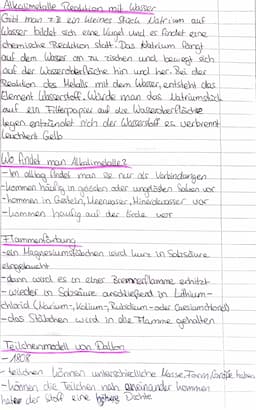 Alkalimetalle Reaktion mit Wasser
Gibt man z.B ein kleines Stück Natrium auf
Wasser bildet sich eine Kugel und es findet eine
chemische Reaktion statt. Das Natrium fängt
auf dem Wasser an zu zischen und bewegt sich
auf der Wasseroberfläche hin und her. Bei der
Reaktion des Metalls mit dem Wasser, entsteht das
Element Wasserstoff. Würde man das Natriumstück
auf ein Filterpapier auf die Wasseroberfläche
legen entzündet sich der Wasserstoff es verbrennt
leuchtend Gelb
Wo findet man Alkalimetalle?
- Im alltag findet man sie nur als Verbindungen
- kommen häufig in gelösten oder ungelösten Salzen vor
- kommen in Gestein, Meerwasser, Mineralwasser vor
- kommen häufig auf der Erde vor
Flammenfärbung
- ein Magnesiumstäbchen wird kurz in Salzsäure
eingetaucht
- dann wird es in einer Brennerflamme erhitzt
- wieder in Salzsäure anschließend in Lithium-
chlorid (Natrium-, Kalium-, Rubidium- oder Caesiumchlorid)
- das Stäbchen wird in die Flamme gehalten
Teilchenmodell von Dalton
- 1808
- teilchen können unterschiedliche Masse, Form, Größe haben
- können die Teilchen nah aneinander kommen
hat der Stoff eine höhere Dichte